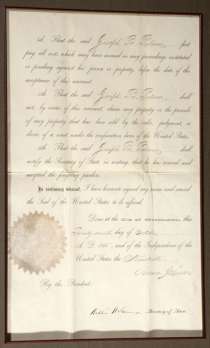 3d. That the said Joseph
pay all costs which may have accrued in any proceedings instituted
or pending against his person or property, before the date of the
acceptance of this warrant.
4th. That the said Joseph shall
not, by virtue of this warrant, claim any property or the proceeds
of any property that has been sold by the order, judgment, or
decree of a court under the confiscation laws of the United States.
5th. That the said Joseph shall
notify the Secretary of State, in writing, that he has received and
accepted the foregoing pardon.
In testimony whereof, I have hereunto signed my name and caused
the Seal of the United States to be affixed.
Done at the City of Washington, this
day of
A. D. and of the Independence of the
United States the Ninetieth
Andrew Johnson
By the President:
Secretary of State.